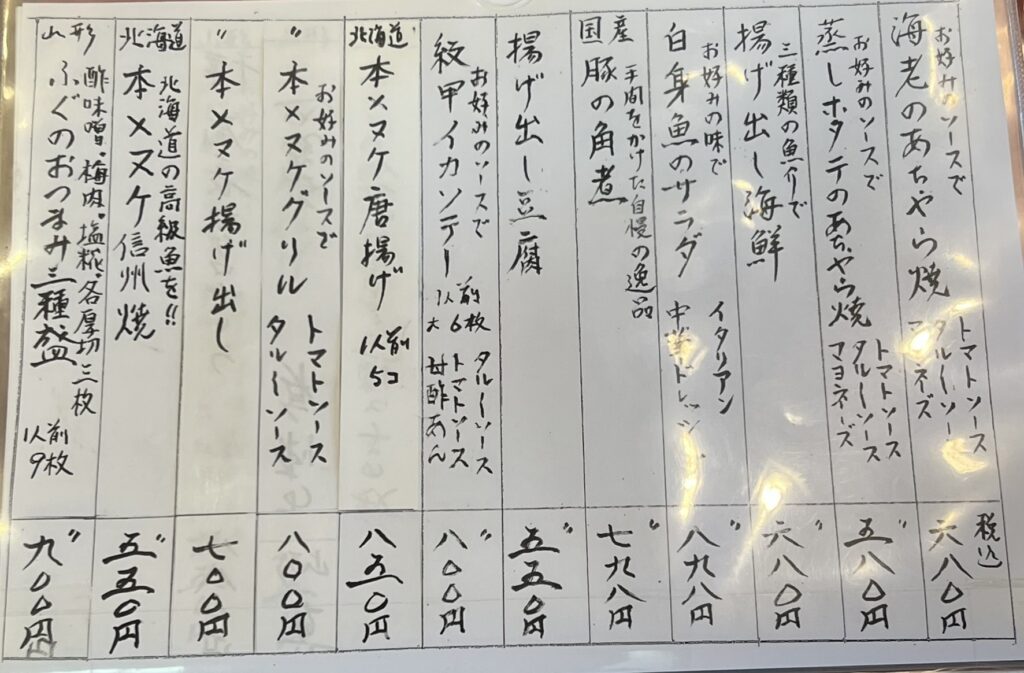 お好みのソースで
海老のあちゃら焼
トマトソース
タルタルソース
マヨネーズ
税込
六八〇円
お好みのソースで
蒸しホタテのあちゃら焼
トマトソース
タルターソース
マヨネーズ
〃
五八〇円
三種類の魚介で
揚げ出し海鮮
〃
六八〇円
お好みの味で
白身魚のサラダ
イタリアン
中華ドレッ
〃
八九八円
国産
豚の角煮
手間をかけた自慢の逸品
〃
七九八円
揚げ出し豆腐
〃
五五〇円
お好みのソースで
紋甲イカソテー
1人前
大6枚
タルターソース
トマトソース
甘酢あん
〃
八〇〇円
北海道
本メヌケ唐揚げ
1人前
5コ
八五〇円
〃
お好みのソースで
本メヌケグリル
トマトソース
タルターソース
〃
八〇〇円
〃
本メヌケ揚げ出し
〃
七〇〇円
北海道
北海道の高級魚を!!
本メヌケ信州焼
〃
五五〇円
山形
酢味噌・梅肉・塩糀、各厚切三枚
ふぐのおつまみ三種盛
1人前
9枚
〃
九〇〇円